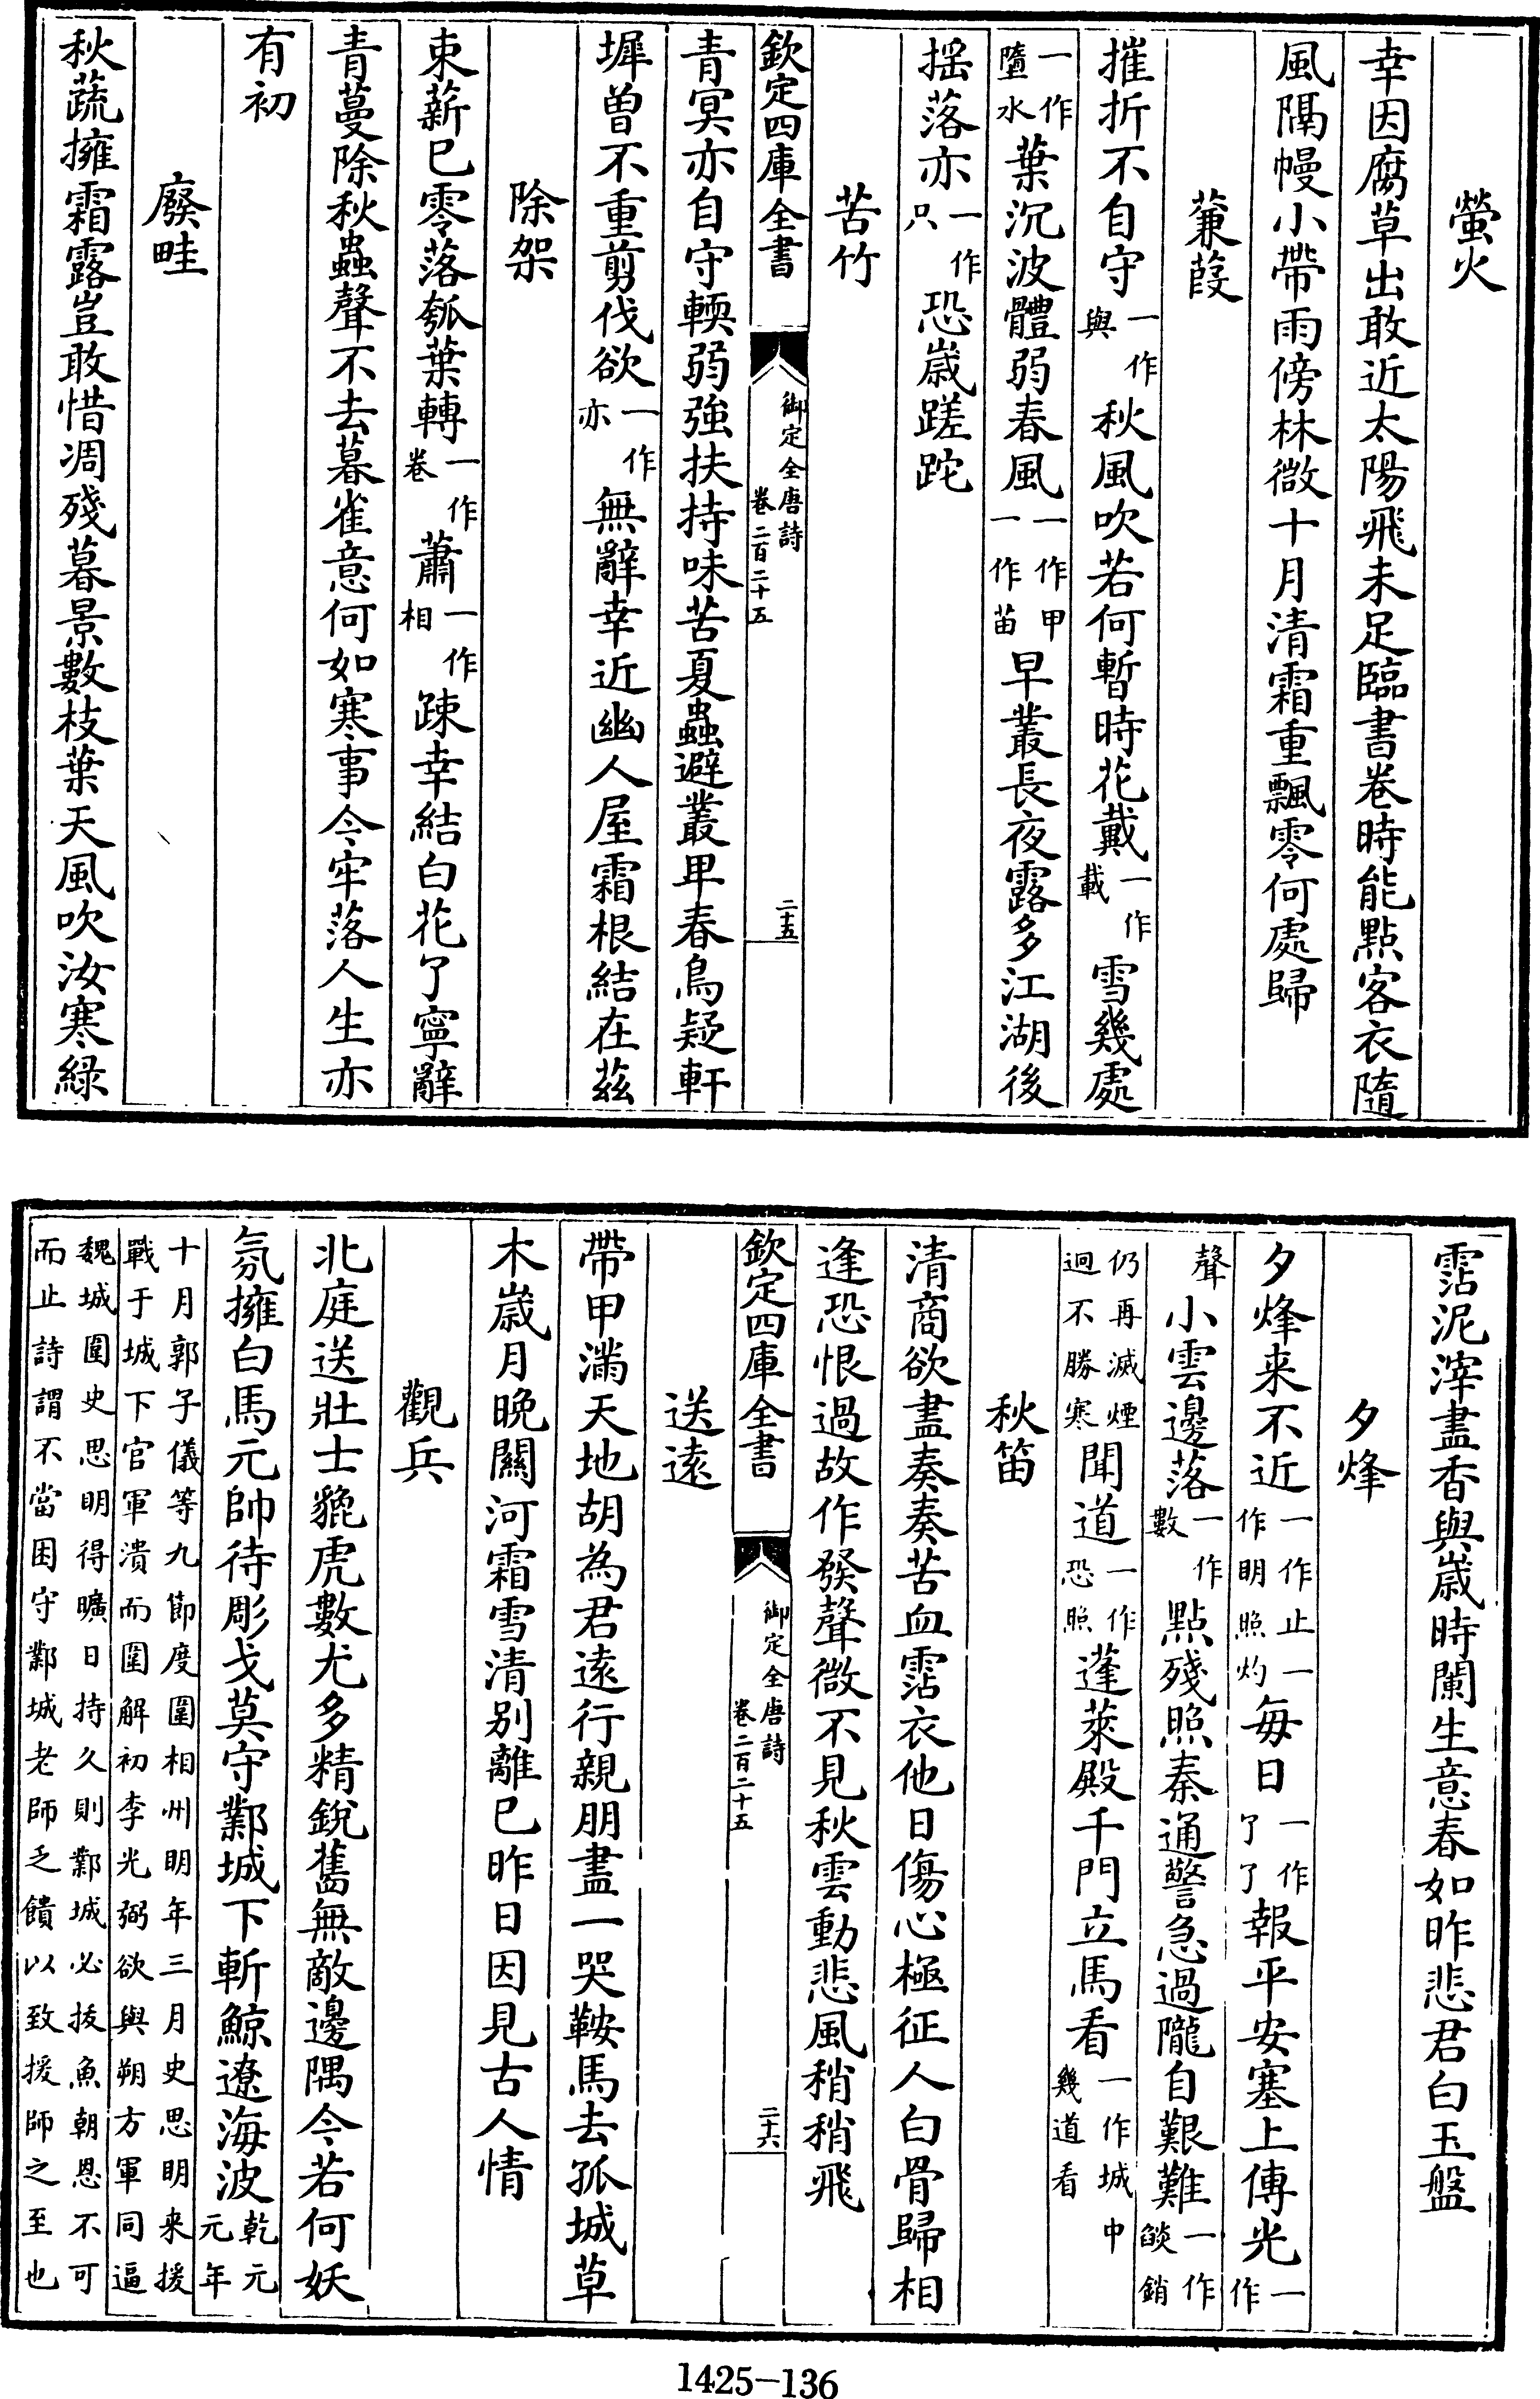 螢火
幸因腐草出敢近太陽飛未足臨書卷時能點客衣隨
風隔幔小帶雨傍林微十月清霜重飄零何處歸
蒹葭
摧折不自守一作與秋風吹若何暫時花戴一作載雪幾處
一作墮水葉沉波體弱春風一作甲一作苖早叢長夜露多江湖後
揺落亦一作只恐歳蹉跎
苦竹
欽定四庫全書
御定全唐詩
卷二百二十五
二十五
青冥亦自守輭弱強扶持味苦夏蟲避叢卑春鳥疑軒
墀曽不重剪伐欲一作亦無辭幸近幽人屋霜根結在兹
除架
束薪已零落瓠葉轉一作卷蕭一作相疎幸結白花了寧辭
青蔓除秋蟲聲不去暮雀意何如寒事今牢落人生亦
有初
廢畦
秋蔬擁霜露豈敢惜凋殘暮景數枝葉天風吹汝寒緑
霑泥滓盡香與歳時闌生意春如昨悲君白玉盤
夕烽
夕烽来不近一作止一作明照灼毎日一作了了報平安塞上傳光一作
聲小雲邊落一作數點殘照秦通警急過隴自艱難一作燄銷
仍再滅煙迥不勝寒聞道一作恐照蓬萊殿千門立馬看一作城中幾道看
秋笛
清商欲盡奏奏苦血霑衣他日傷心極征人白骨歸相
逢恐恨過故作發聲微不見秋雲動悲風稍稍飛
欽定四庫全書
御定全唐詩
卷二百二十五
二十六
送逺
帶甲滿天地胡為君逺行親朋盡一哭鞍馬去孤城草
木歳月晚關河霜雪清別離已昨日因見古人情
觀兵
北庭送壯士貔虎數尤多精銳舊無敵邊隅今若何妖
氛擁白馬元帥待彫戈莫守鄴城下斬鯨遼海波乾元元年
十月郭子儀等九節度圍相州明年三月史思明来援
戰于城下官軍潰而圍解初李光弼欲與朔方軍同逼
魏城圍史思明得曠日持久則鄴城必拔魚朝恩不可
而止詩謂不當困守鄴城老師乏饋以致援師之至也
1425-136